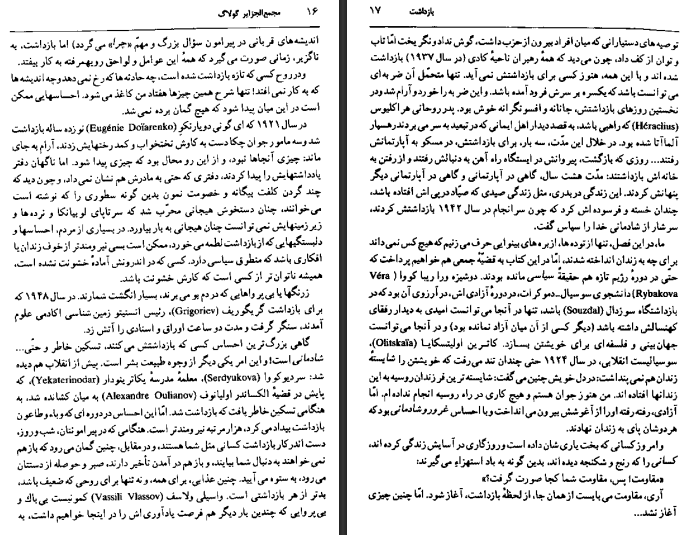 ۱۶ مجمع‌الجزایر گولاگ
اندیشه‌های قربانی در پیرامون سؤال بزرگ و مهم «چرا» می‌گردد) اما بازداشت، به
ناگزیر، زمانی صورت می‌گیرد که همهٔ این عوامل و لواحق رویهمرفته به کار بیفتد.
ودر روح کسی که تازه بازداشت شده است، چه حادثه‌ها که رخ نمی‌دهد وچه اندیشه‌ها
که به کار نمی‌افتد! تنها شرح همین چیزها هفتاد من کاغذ می‌شود. احساسهایی ممکن
است در این میان پیدا شود که هیچ گمان برده نمی‌شد.
در سال ۱۹۲۱ که ای گونی دویارنکو (Eugénie Doïarenko) نوزده ساله بازداشت
شد وسه مامور جوان چکادست به کاوش تختخواب و کمد رختهایش زدند، آرام به جای
ماند: چیزی آنجاها نبود، و از این رو محال بود که چیزی پیدا شود. اما ناگهان دفتر
یادداشتهایش را پیدا کردند، دفتری که حتی به مادرش هم نشان نمی‌داد، و چون دید که
چند گردن کلفت بیگانه و خصومت نمون بدین گونه سطوری را که نوشته است
می‌خوانند، چنان دستخوش هیجانی مخرب شد که سرتاپای لوبیانکا و نرده‌ها و
زیرزمینهایش نمی‌توانست چنان هیجانی به بار بیاورد. در بسیاری از مردم، احساسها و
دلبستگیهایی که از بازداشت لطمه می‌خورد، ممکن است بسی نیرومندتر از خوف زندان یا
افکاری باشد که منطوق سیاسی دارد. کسی که در اندرونش آمادهٔ خشونت نشده است،
همیشه ناتوان‌تر از کسی است که کارش خشونت باشد.
زرنگها یا بی‌پرواهایی که دردم بو می‌برند، بسیار انگشت شمارند. در سال ۱۹۴۸ که
برای بازداشت گریگوریف (Grigoriev)، رئیس انستیتو زمین شناسی اکادمی علوم
آمدند، سنگر گرفت و مدت دو ساعت اوراق و اسنادی را آتش زد.
گاهی بزرگ‌ترین احساس کسی که بازداشتش می‌کنند، تسکین خاطر و حتّی...
شادمانی است! و این امر یکی دیگر از وجوه طبیعت بشر است. پیش از انقلاب هم دیده
شد: سردیوکووا (Serdyukova)، معلمهٔ مدرسهٔ یکاترینودار (Yekaterinodar)، که
پایش در قضیهٔ الکساندر اولیانوف (Alexandre Oulianov) به میان کشانده شد، به
هنگامی تسکین خاطر یافت که بازداشت شد. امّا این احساس در دوره‌ای که وباء وطاعون
بازداشت بیداد می‌کرد، هزار مرتبه نیرومندتر است. هنگامی که در پیرامونتان، شب وروز،
دست اندرکار بازداشت کسانی مثل شما هستند، ودر مقابل، چنین گمان می‌رود که باز هم
نمی‌خواهند به دنبال شما بیایند، و باز هم در آمدن تأخیر دارند، صبر و حوصله از دستتان
می‌رود، به ستوه می‌آیید. چنین عذابی، برای همه، و نه تنها برای روحی که ضعیف باشد،
بدتر از هر بازداشتی است. واسیلی ولاسف (Vassili Vlassov) کمونیست بی‌باك و
بی‌پروایی که چندین بار دیگر هم فرصت یادآوری اش را در اینجا خواهیم داشت، به
بازداشت ۱۷
توصیه‌های دستیارانی که میان افراد بیرون از حزب داشت، گوش نداد ونگریخت امّا تاب
و توان از کف داد، چون می‌دید که همهٔ رهبران ناحیهٔ کادی (در سال ۱۹۳۷) بازداشت
شده اند و با این همه، هنوز کسی برای بازداشتش نمی‌آید. تنها متحمّل آن ضربه‌ای
می‌توانست باشد که یکسره بر سرش فرود آمده باشد. و این ضربه را خورد و آرام شد و در
نخستین روزهای بازداشتش، جانانه و افسونگرانه خوش بود. پدر روحانی هراکلیوس
(Héraclius) که راهبی باشد، به قصد دیدار اهل ایمانی که در تبعید به سر می‌بردند رهسپار
آلماآتا شده بود. در خلال این مدّت، سه بار، برای بازداشتش، در مسکو به آپارتمانش
رفتند... روزی که بازگشت، پیروانش در ایستگاه راه آهن به دنبالش رفتند و از رفتن به
خانه‌اش بازداشتند: مدّت هشت سال، گاهی در آپارتمانی و گاهی در آپارتمانی دیگر
پنهانش کردند. این زندگی دربدری، مثل زندگی صیدی که صیّاد در پی‌اش افتاده باشد،
چندان خسته و فرسوده‌اش کرد که چون سرانجام در سال ۱۹۴۲ بازداشتش کردند،
سرشار از شادمانی خدا را سپاس گفت.
ما، در این فصل، تنها از توده‌ها، از بره‌های بینوایی حرف می‌زنیم که هیچ کس نمی‌داند
برای چه به زندان انداخته شدند، امّا در این کتاب به قضیّهٔ جمعی هم خواهیم پرداخت که
حتّی در دورهٔ رژیم تازه هم حقیقةً سیاسی مانده بودند. دوشیزه ورا ریبا کووا (Véra
Rybakova) دانشجوی سوسیال-دموکرات، در دورهٔ آزادی‌اش، در آرزوی آن بود که در
بازداشتگاه سوزدال (Souzdal) باشد، تنها در آنجا می‌توانست امیدی به دیدار رفقای
کهنسالش داشته باشد (دیگر کسی از آن میان آزاد نمانده بود) و در آنجا می‌توانست
جهان‌بینی و فلسفه‌ای برای خویشتن بسازد. کاترین اولیتسکایا (Olitskaïa)،
سوسیالیست انقلابی، در سال ۱۹۲۴ حتی چندان تند می‌رفت که خویشتن را شایستهٔ
زندان هم نمی‌پنداشت: در دل خویش چنین می‌گفت: شایسته‌ترین فرزندان روسیه به این
زندانها افتاده‌اند. من هنوز جوان هستم و هیچ کاری در راه روسیه انجام نداده‌ام. امّا
آزادی، رفته رفته او را از آغوشش بیرون می‌انداخت و با احساس غرور و شادمانی بود که
هر دوشان پای به زندان نهادند.
و امروز کسانی که بخت یاری‌شان داده است و روزگاری در آسایش زندگی کرده‌اند،
کسانی را که رنج و شکنجه دیده‌اند، بدین گونه به باد استهزاء می‌گیرند:
«مقاومت! پس، مقاومت شما کجا صورت گرفت؟»
آری، مقاومت می‌بایست از همان جا، از لحظهٔ بازداشت، آغاز شود. امّا چنین چیزی
آغاز نشد...